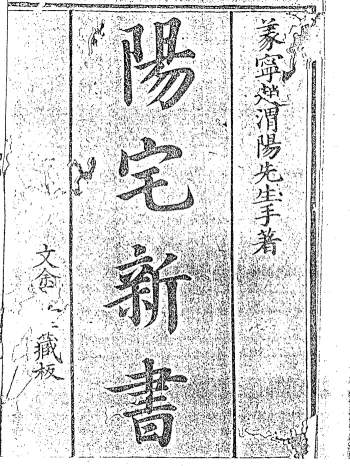 羕寧趙渭陽先生手著
陽宅新書
文 藏板